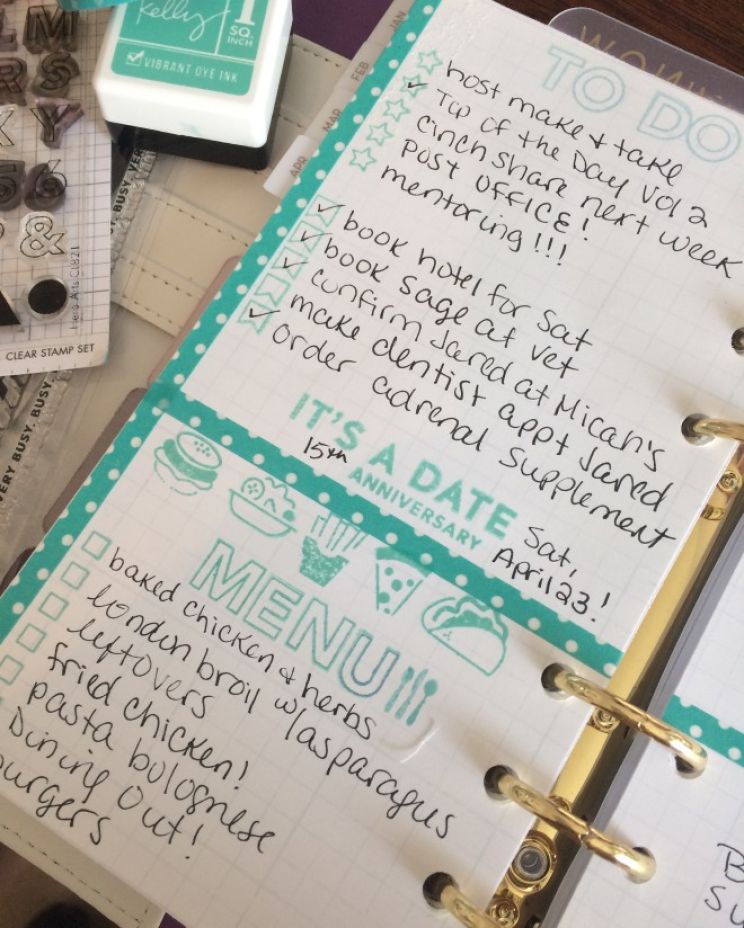 M
RS
XY
56
&
Hero Arts CL821
CLEAR STAMP SET
VERY BUSY. BUSY
BUSY. VERY
kelly
1
SQ.
INCH
VIBRANT DYE INK
JAN
FEB
MAR
APR
TO DO
host make & take
Tip of the Day Vol 2
cinchshare next week
POST OFFICE!
mentoring!!!
book hotel for Sat
book sage at vet
confirm Jared at Mican's
make dentist appt Jared
order adrenal supplement
IT'S A DATE
15th ANNIVERSARY
Sat,
April 23!
MENU
baked chicken & herbs
london broil w/asparagus
leftovers
fried chicken!
pasta bolognese
Dining Out!
burgers